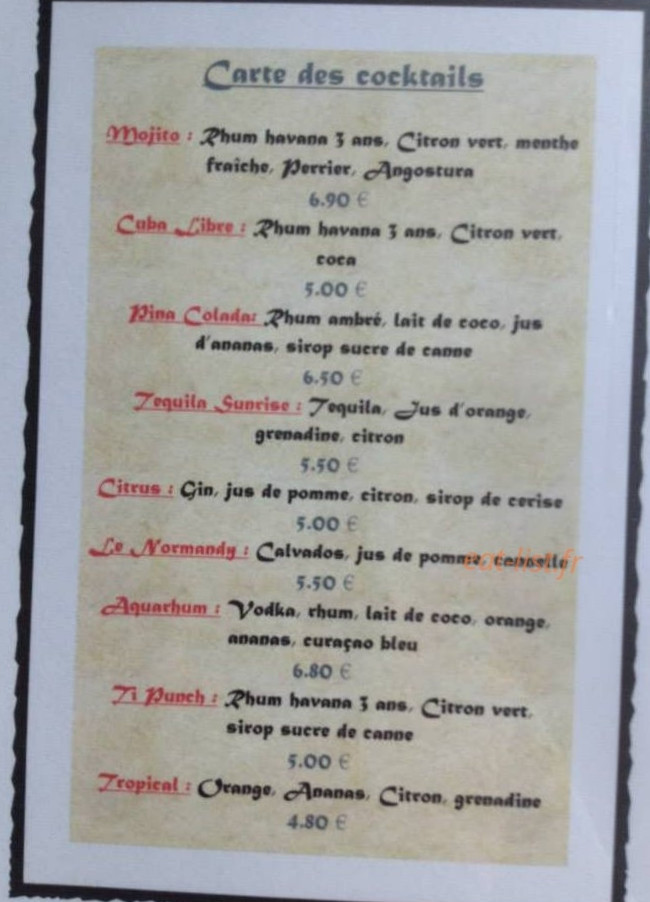 Carte des cocktails
Mojito : Rhum havana 3 ans, Citron vert, menthe
fraîche, Perrier, Angostura
6.90 €
Cuba Libre : Rhum havana 3 ans, Citron vert,
coca
5.00 €
Pina Colada: Rhum ambré, lait de coco, jus
d'ananas, sirop sucre de canne
6.50 €
Tequila Sunrise : Tequila, Jus d'orange,
grenadine, citron
5.50 €
Citrus : Gin, jus de pomme, citron, sirop de cerise
5.00 €
Le Normandy : Calvados, jus de pomme, cannelle
eat-list.fr
5.50 €
Aquarhum : Vodka, rhum, lait de coco, orange,
ananas, curaçao bleu
6.80 €
Ti Punch : Rhum havana 3 ans, Citron vert,
sirop sucre de canne
5.00 €
Tropical : Orange, Ananas, Citron, grenadine
4.80 €